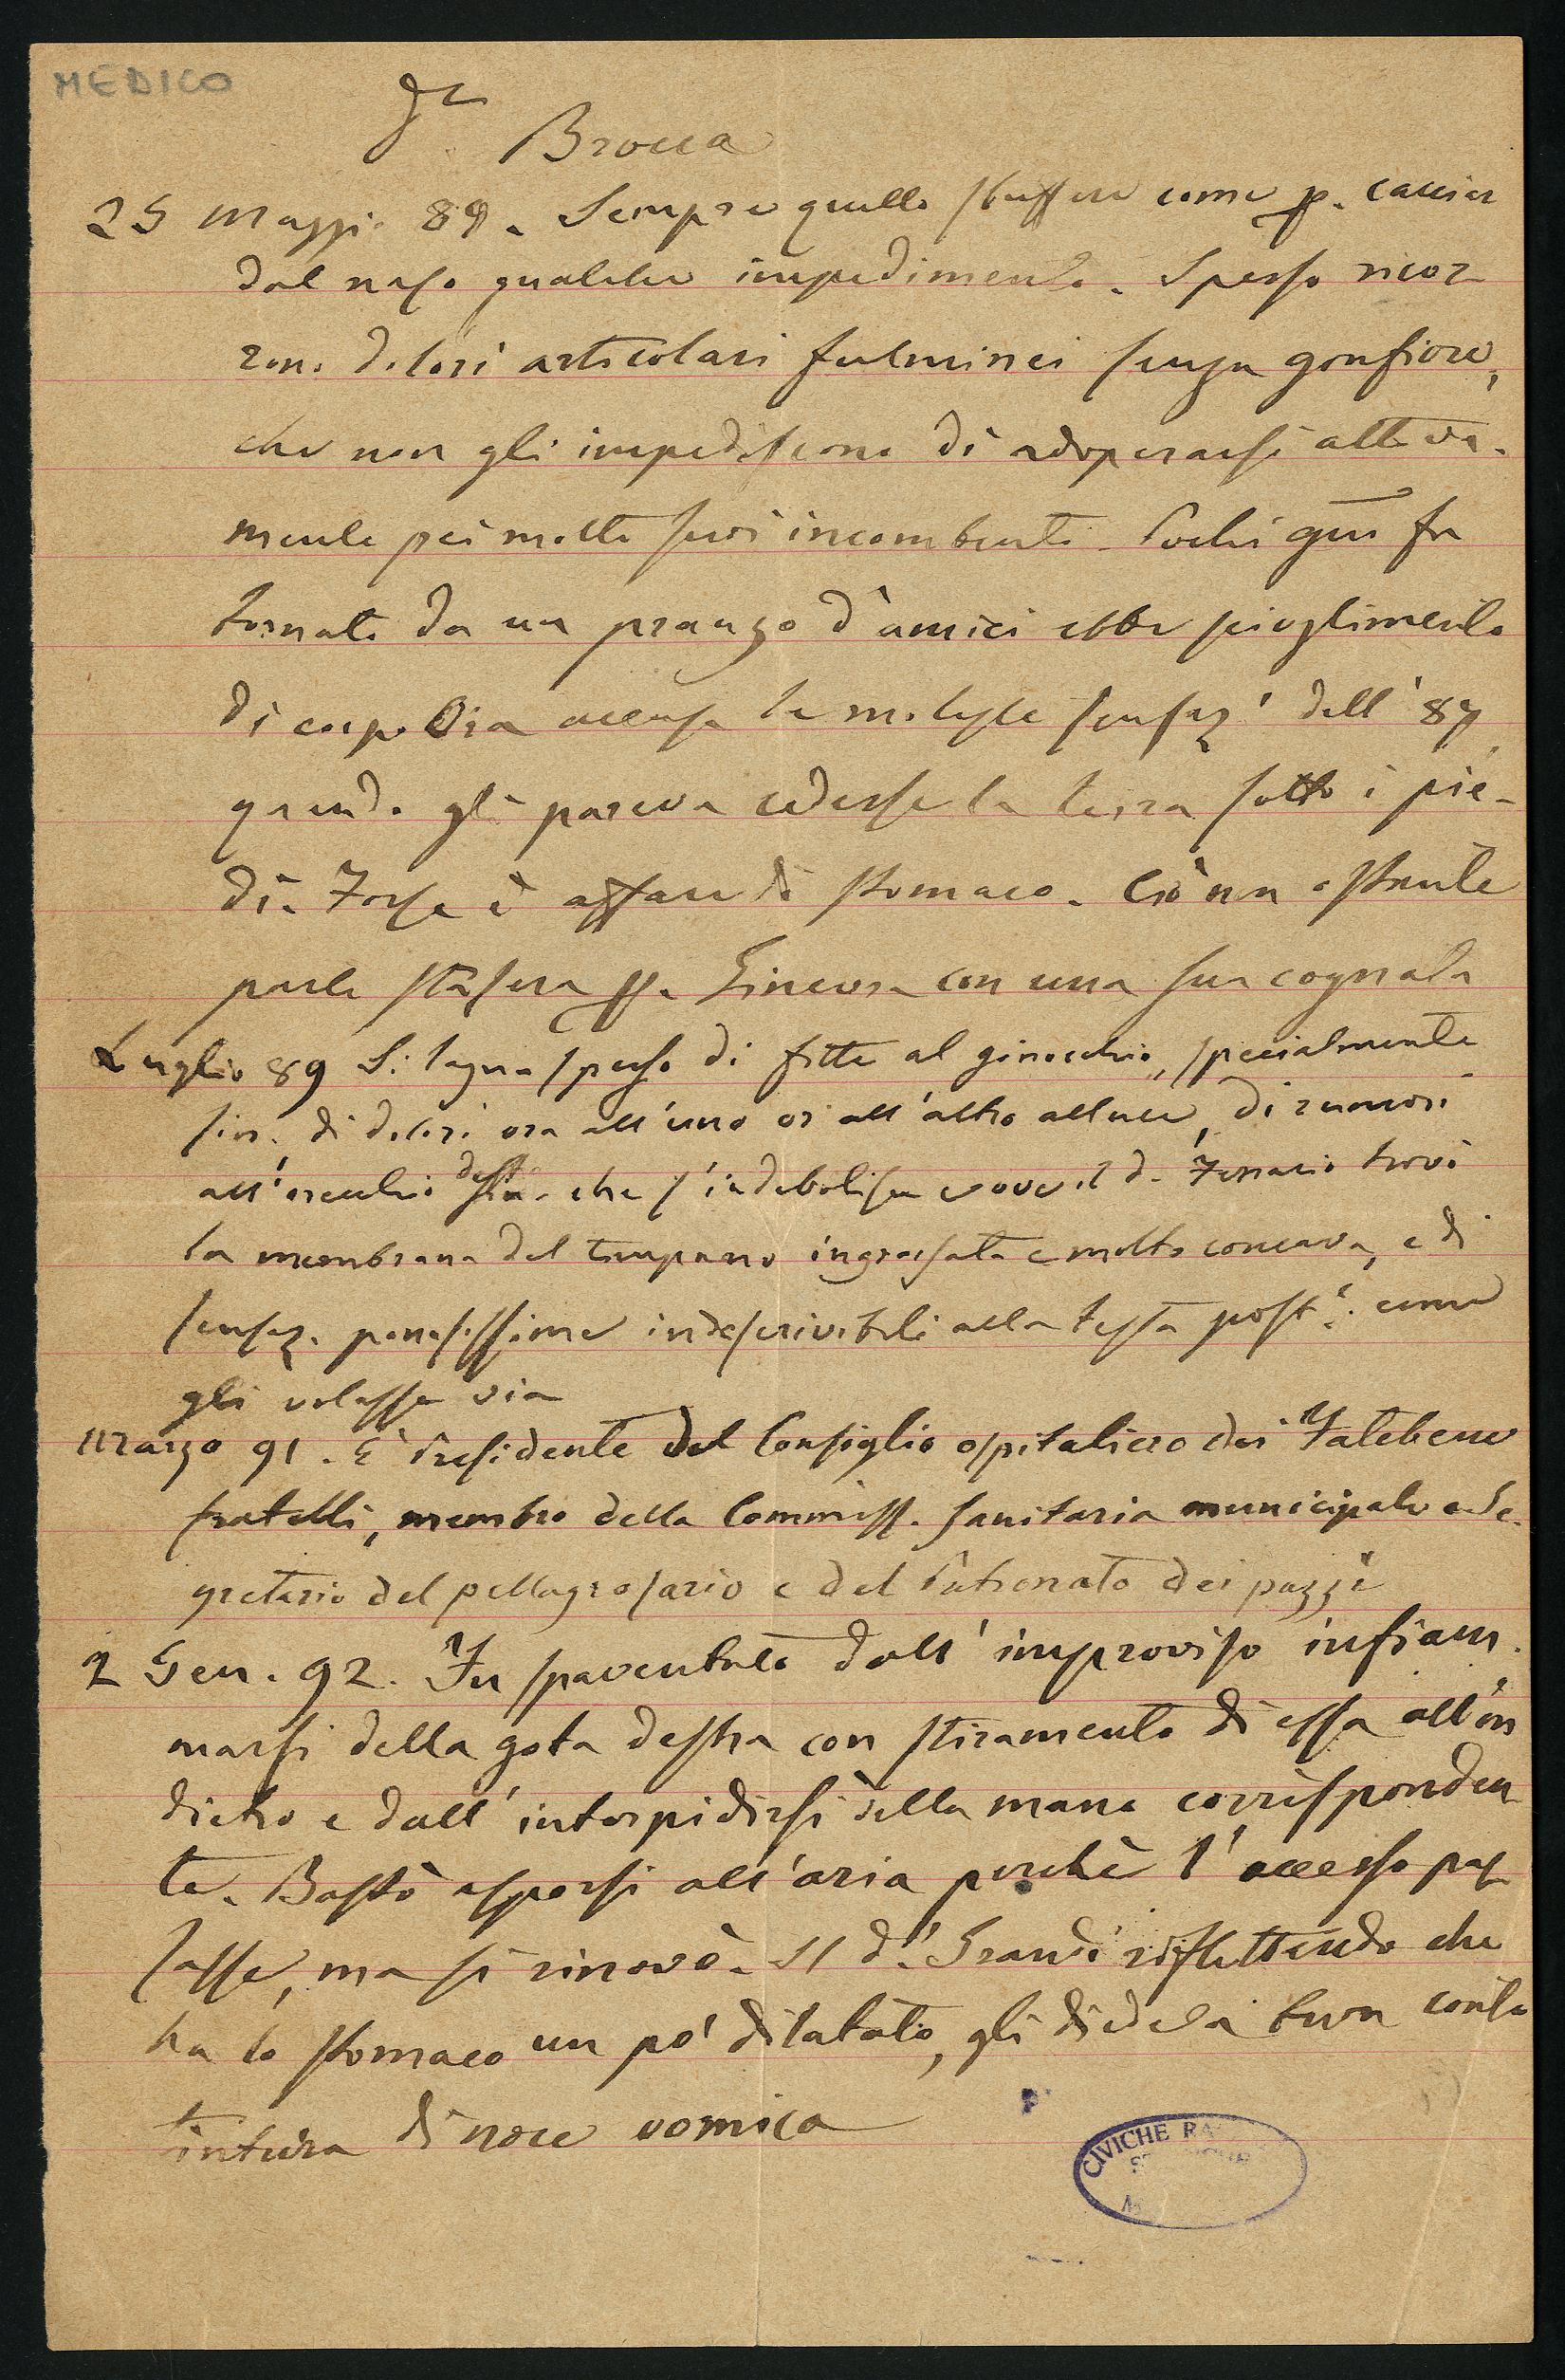 MEDICO
Dr Brocca
25 Maggio 89. Sempre quello sbuffare come p. cacciar
dal naso qualche impedimento. Spesso ricor
rono dolori articolari fulminei senza gonfiore,
che non gli impediscono di adoperarsi attiva-
mente pei molti suoi incombenti. Pochi gni fa
tornato da un pranzo d'amici ebbe scioglimento
di corpo. Ora accusa le moleste sensaz' dell' 87
quando gli pareva cedesse la terra sotto i pie-
di. Forse è affare di stomaco. Ciò non ostante
parte stasera p. Ginevra con una sua cognata
Luglio 89 Si lagna spesso di fitte al ginocchio, specialmente
sin. di dolori ora all'uno or all'altro alluce, di rumori
all'orecchio dest. che s'indebolisce e ove il d. Ferrario trovò
la membrana del timpano ingrossata e molto concava, e di
sensaz. penosissime indescrivibili alla testa post.e come
gli volasse via
Marzo 91. È Presidente del Consiglio ospitaliero dei Fatebene
fratelli, membro della Commiss. sanitaria municipale e Se-
gretario del pellagrosario e del Patronato dei pazzi
2 Gen. 92. Fu spaventato dall' improviso infiam
marsi della gota destra con stiramento di essa all'in
dietro e dall' intorpidirsi della mano corrisponden
te. Bastò esporsi all'aria perchè l'accesso pas
sasse, ma si rinovò. Il d.r Grandi riflettendo che
ha lo stomaco un po' dilatato, gli diede a buon conto
tintura di noce vomica
CIVICHE RA